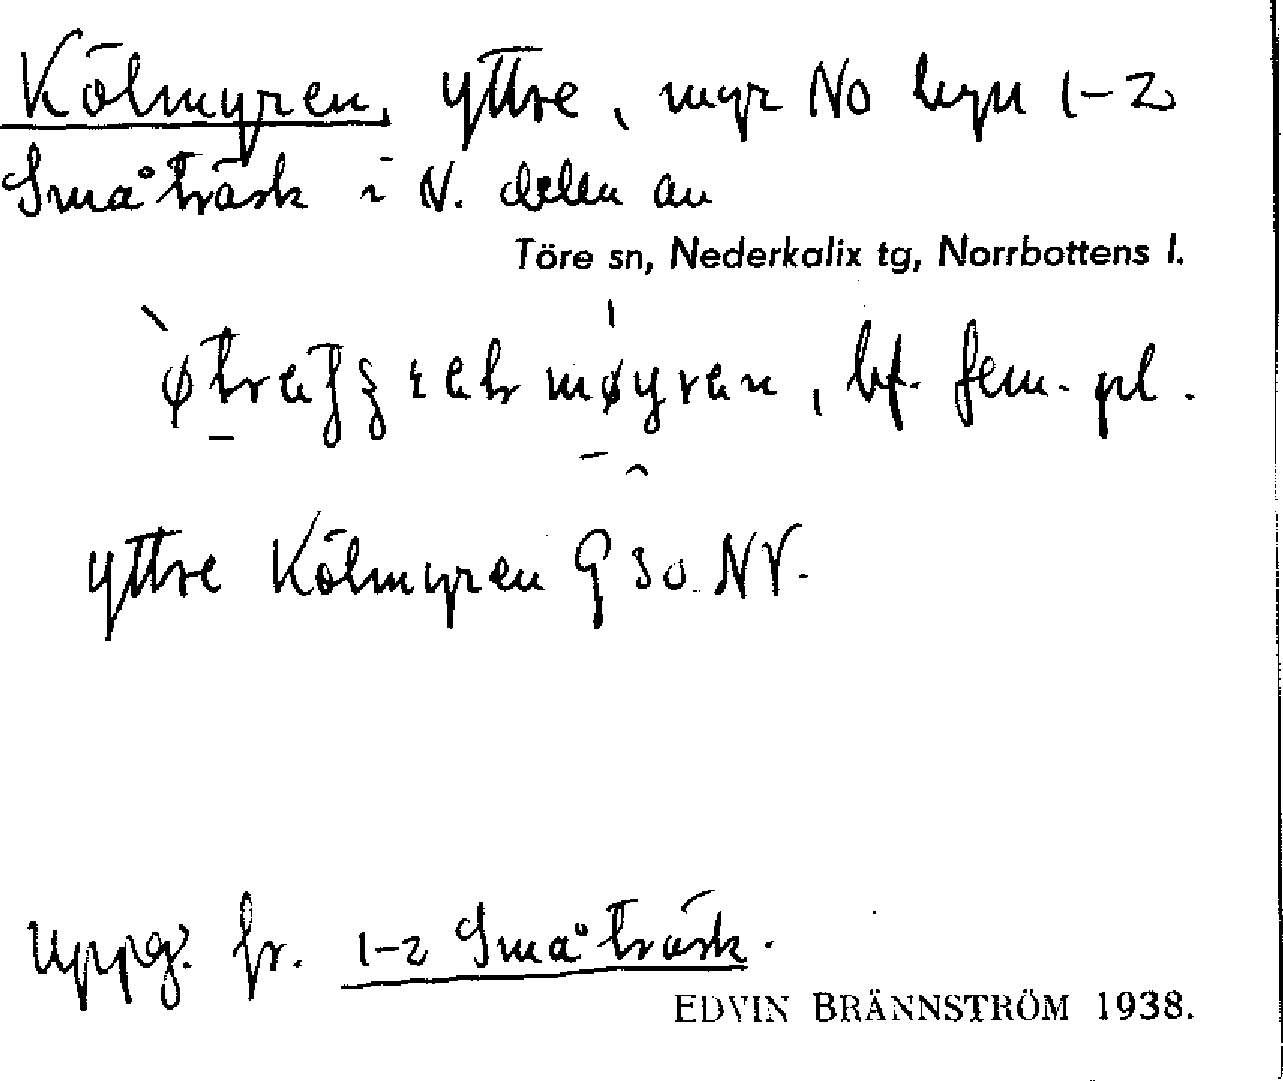 Kölmyren, yttre, myr No byn 1-2
Småträsk i N. delen av
Töre sn, Nederkalix tg, Norrbottens l.
bf. fem. pl.
yttre Kölmyren 9 so. NV.
Uppg. fr. 1-2 Småträsk.
EDVIN BRÄNNSTRÖM 1938.